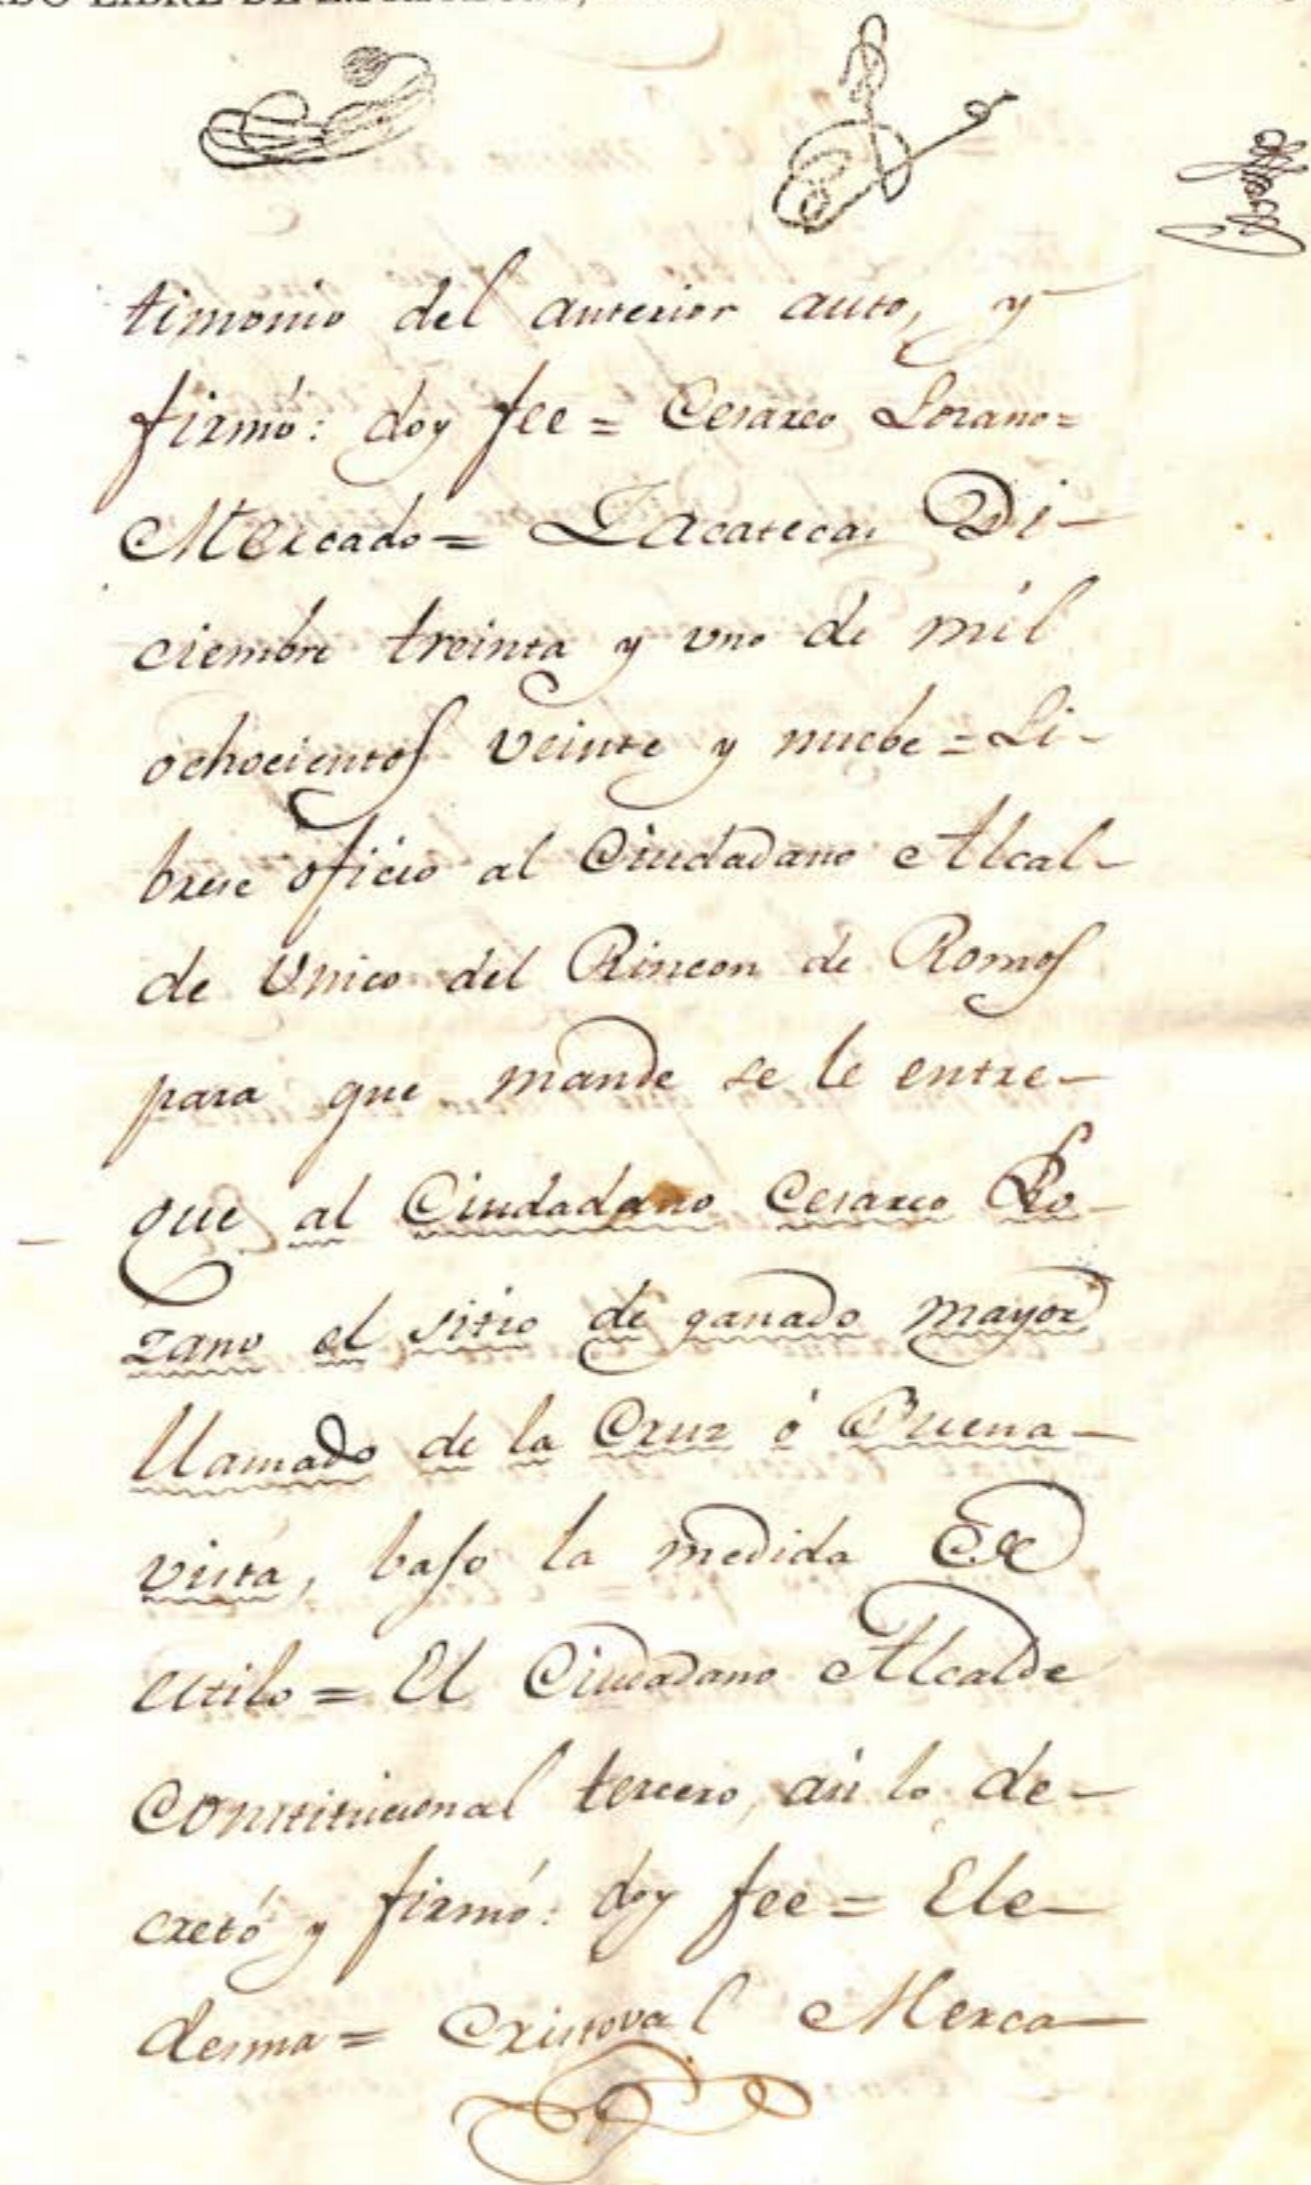 timonio del anterior auto, y
firmó: doy fee = Cesareo Lozano =
Mercado = Zacatecas Di-
ciembre treinta y uno de mil
ochocientos veinte y nuebe = Li-
brese oficio al Ciudadano Alcal-
de Unico del Rincon de Romos
para que mande se le entre-
gue al Ciudadano Cesareo Lo-
zano el sitio de ganado mayor
llamado de la Cruz ó Buena-
vista, bajo la medida de
estilo = El Ciudadano Alcalde
Constitucional tercero, asi lo de-
cretó y firmó: doy fee = Ele-
desma = Cristoval Merca-